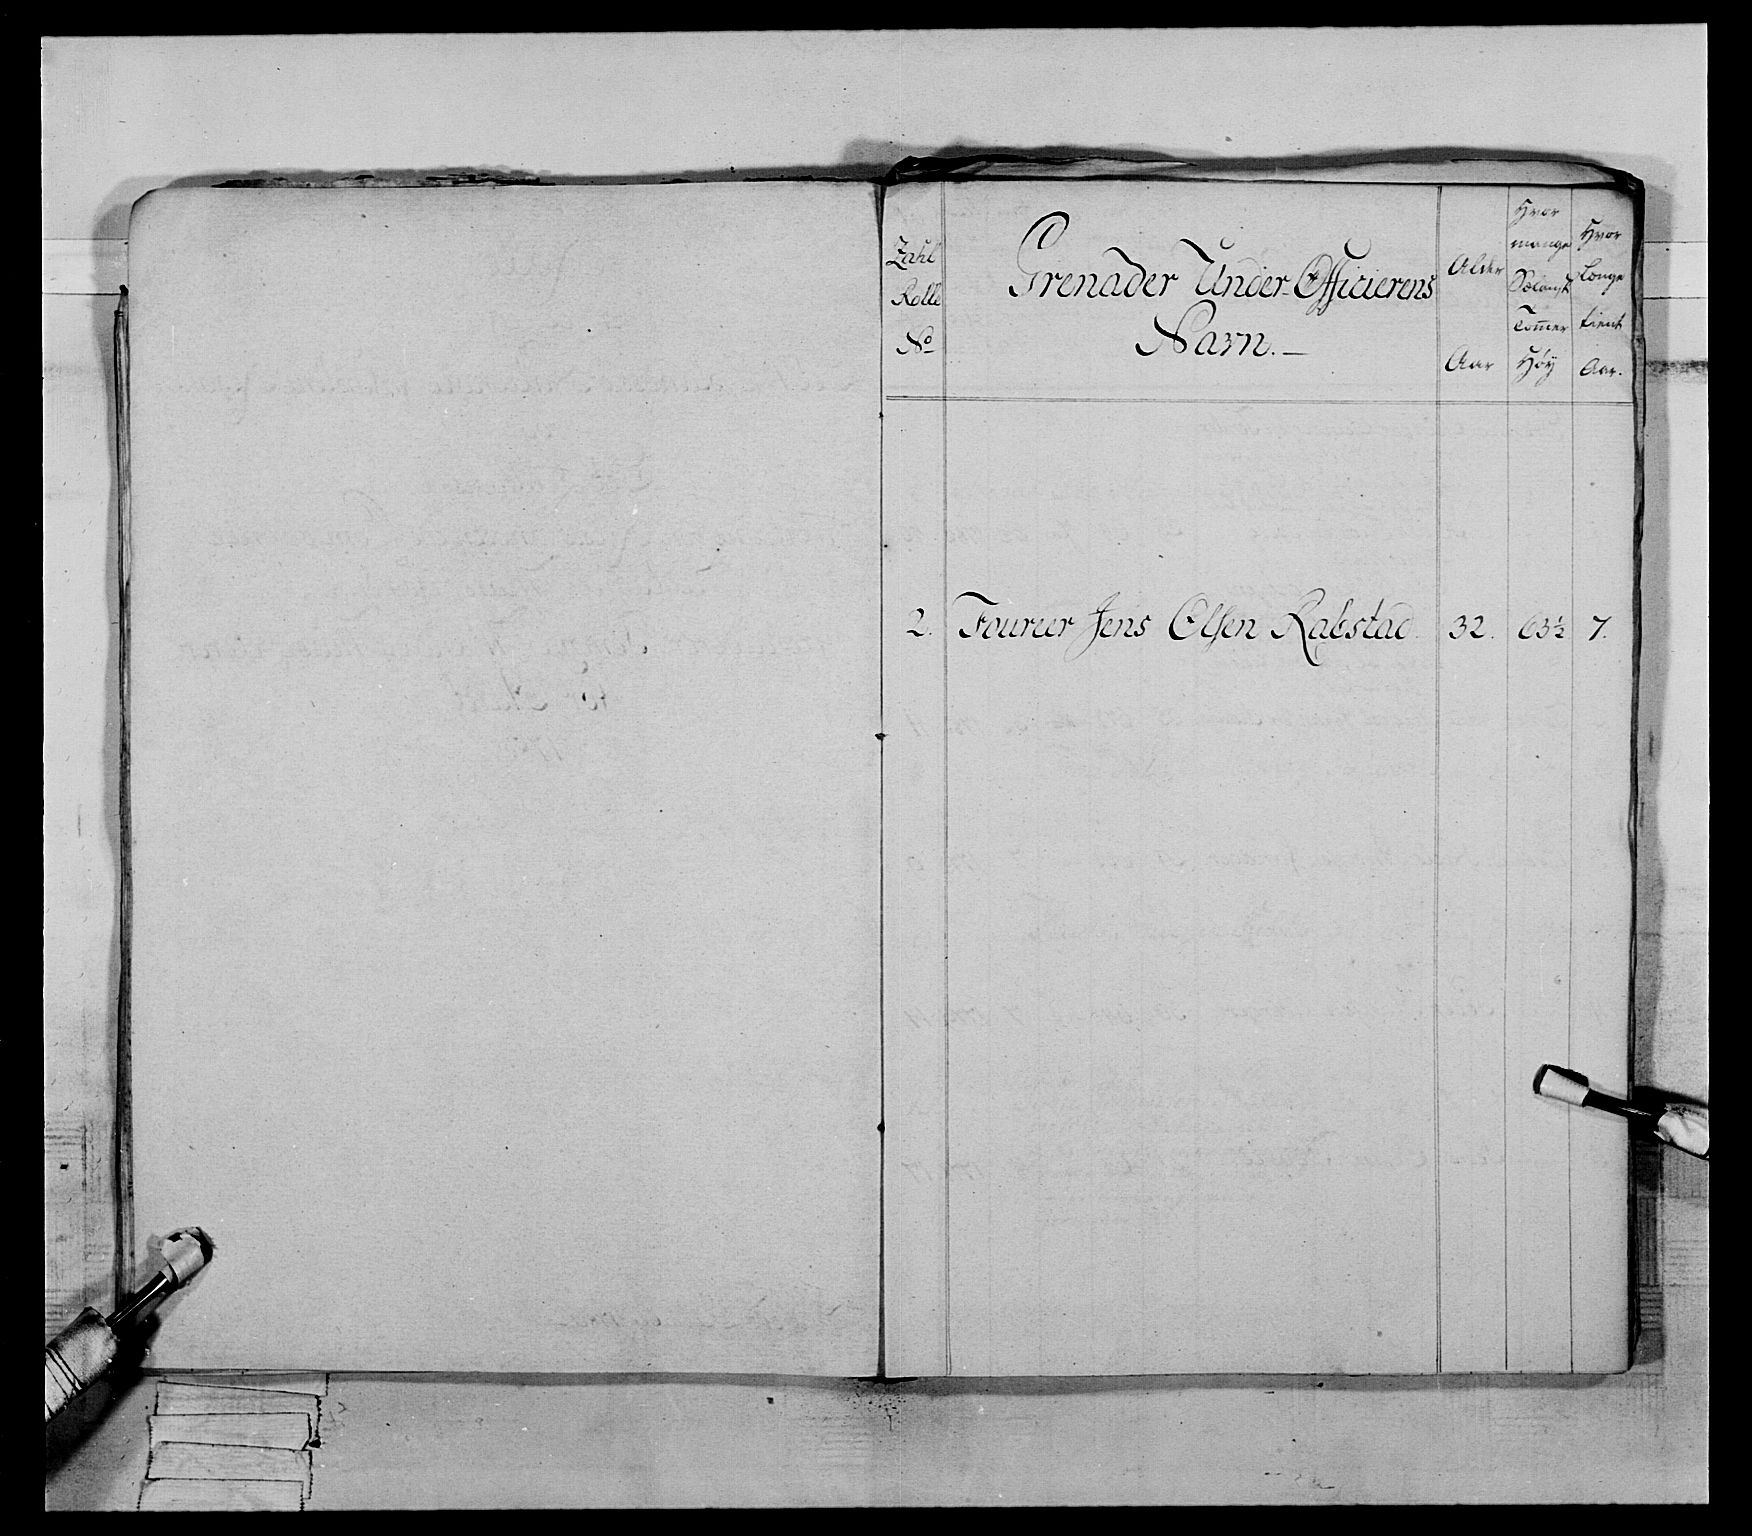 Zahl Rolle No
Grenader Under-Officierens
Navn. —
Alder Aar
Hvor mange Tommer Höÿ
Hvor Længe tient Aar.
2. Foureer Jens Olsen Rabstad. 32. 63½ 7.